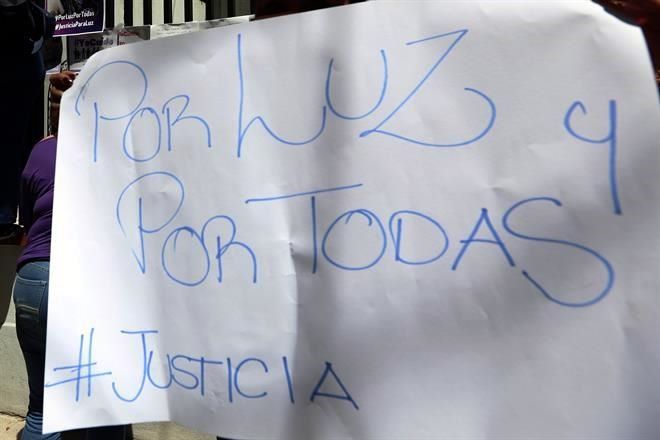 #PorLuzPorTodas
#JusticiaParaLuz
POR LUZ Y
POR TODAS
#JUSTICIA